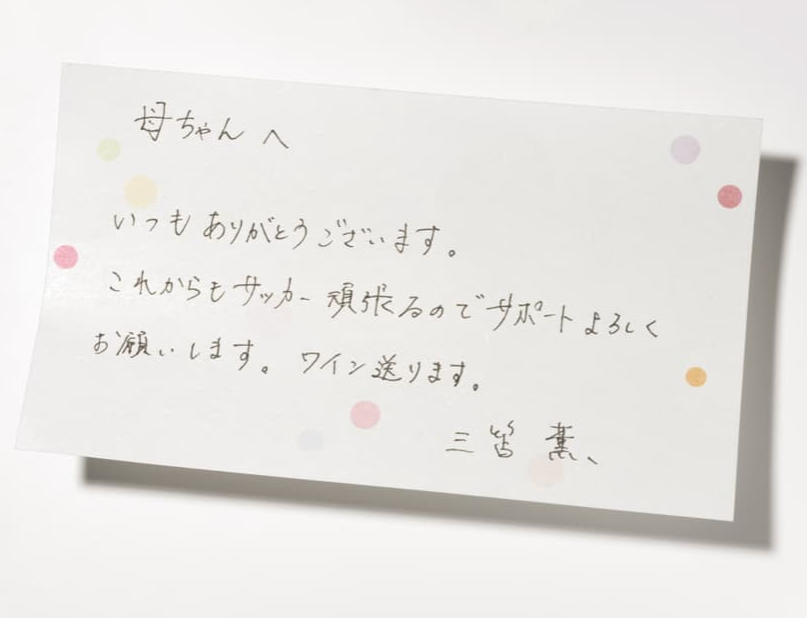 母ちゃんへ
いつもありがとうございます。
これからもサッカー頑張るのでサポートよろしく
お願いします。ワイン送ります。
三笘 薫、